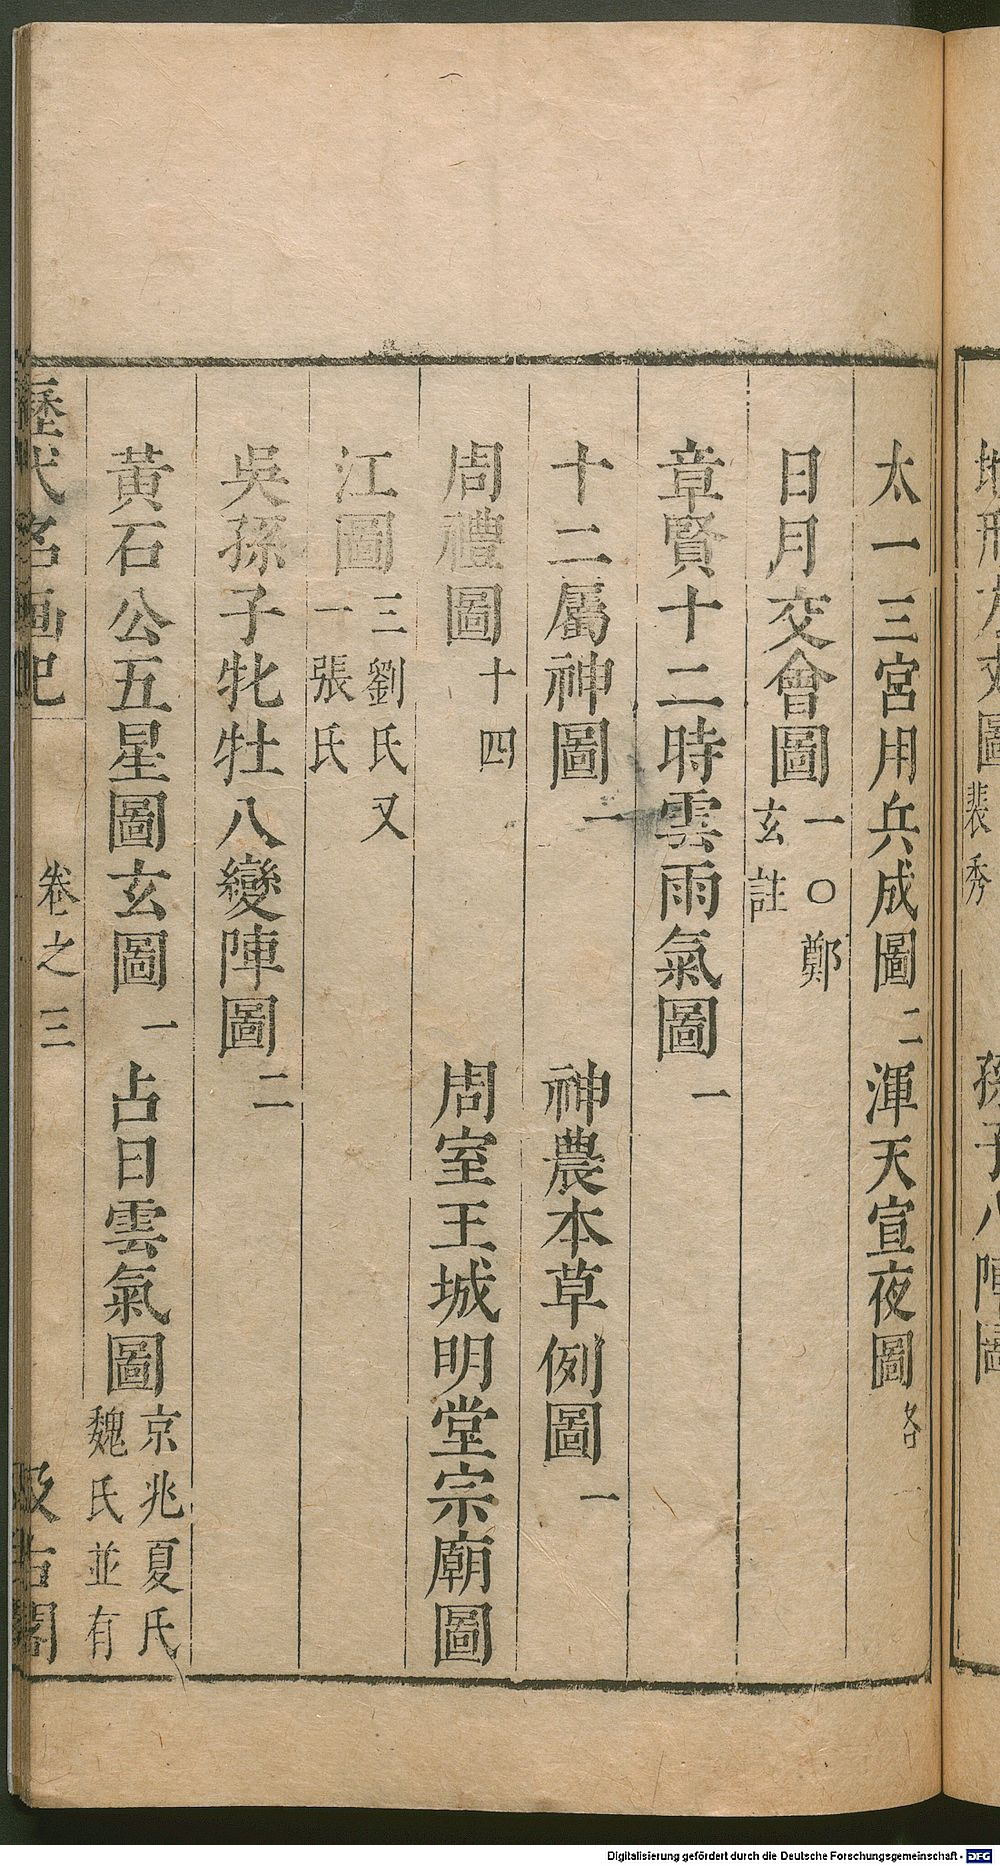 地形方丈圖 裴秀 孫子八陣圖
太一三宮用兵成圖 二 渾天宣夜圖 各一
日月交會圖 一〇鄭玄註
章賢十二時雲雨氣圖 一
十二屬神圖 一 神農本草例圖 一
周禮圖 十四 周室王城明堂宗廟圖
江圖 三劉氏又一張氏
吳孫子牝牡八變陣圖 二
黃石公五星圖玄圖 一 占日雲氣圖 京兆夏氏魏氏並有
歷代名画記 卷之三 汲古閣
Digitalisierung gefördert durch die Deutsche Forschungsgemeinschaft - DFG